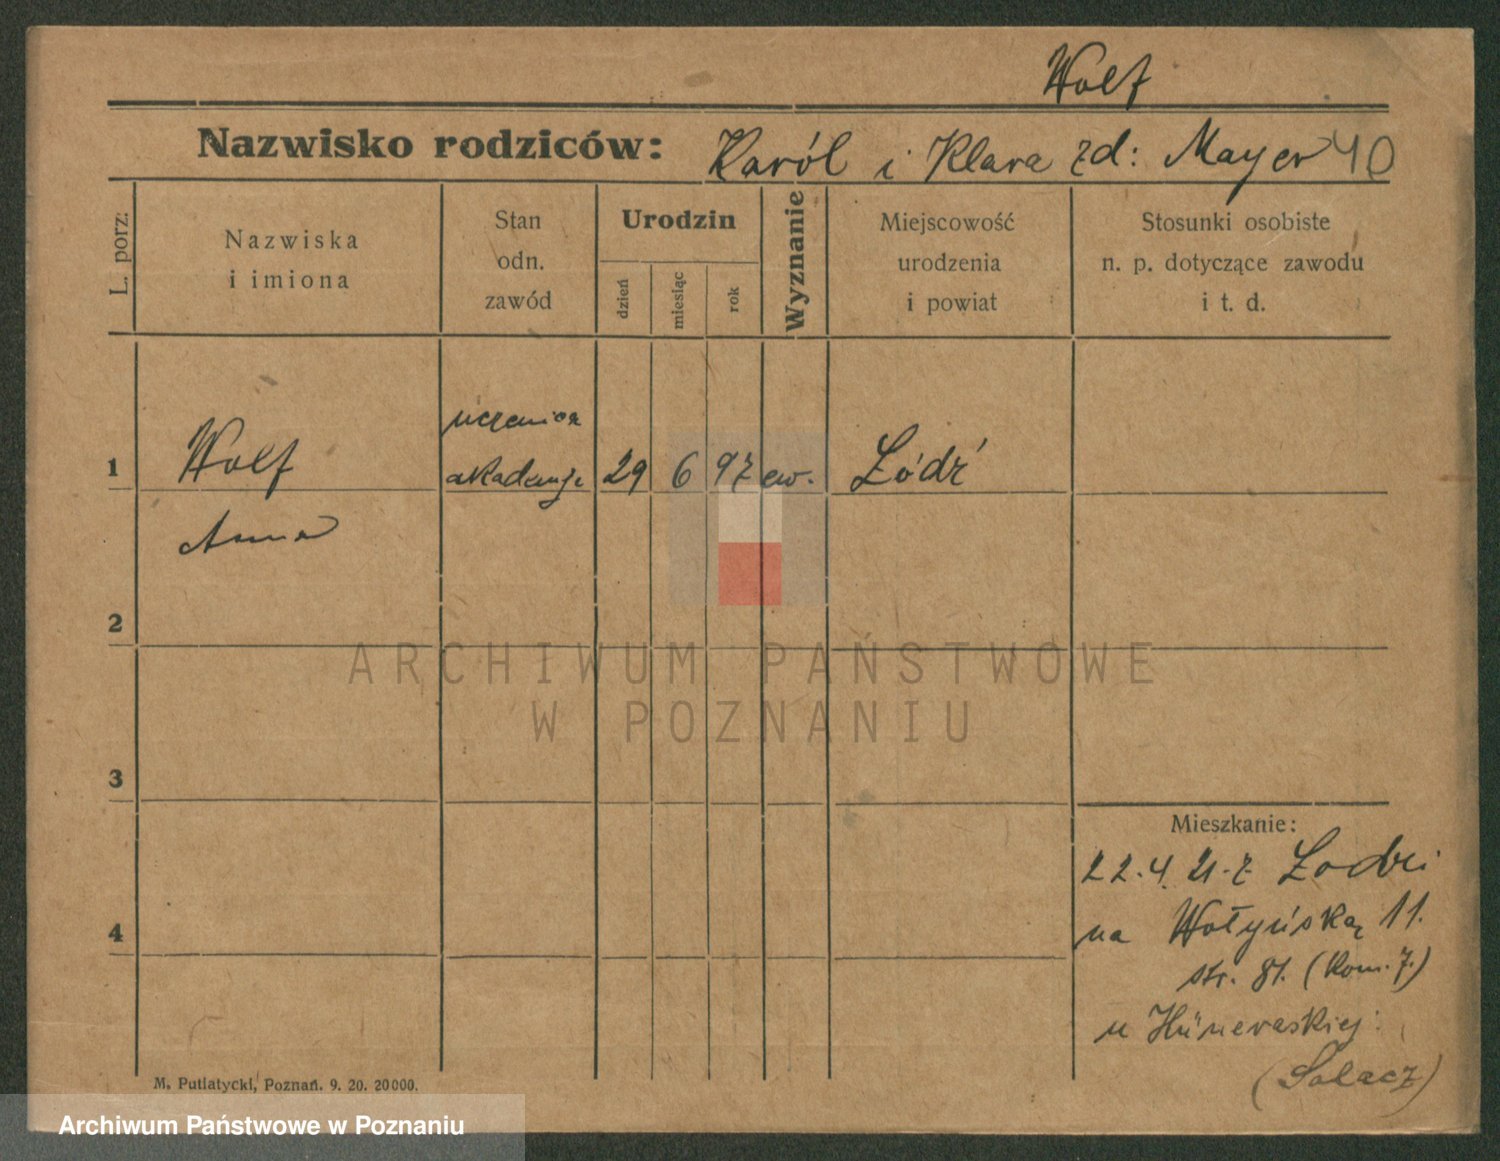 Wolf
Nazwisko rodziców: Karól i Klara zd: Mayer 40
L. porz.
Nazwiska
i imiona
Stan
odn.
zawód
Urodzin
dzień
miesiąc
rok
Wyznanie
Miejscowość
urodzenia
i powiat
Stosunki osobiste
n. p. dotyczące zawodu
i t. d.
uczenica
1 Wolf akademji 29 6 97 ew. Łódź
Anna
2
ARCHIWUM PAŃSTWOWE
W POZNANIU
3
Mieszkanie:
22.4. 21. z Łodzi
4 na Wołyńską 11.
str. 81. (kom. 7.)
u Hüneraskiej
(Sołacz)
M. Putiatycki, Poznań. 9. 20. 20000.
Archiwum Państwowe w Poznaniu